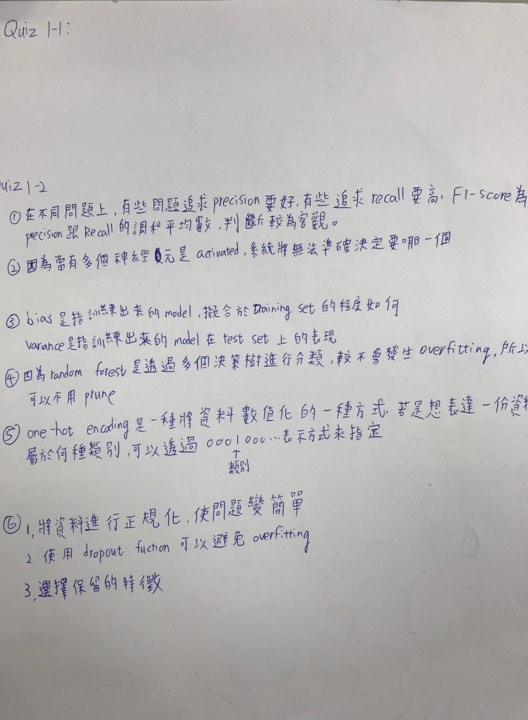 Quiz 1-1:
uiz 1-2
① 在不同問題上,有些問題追求 precision 要好,有些追求 recall 要高, F1-score 為
pecision 跟 Recall 的調和平均數,判斷較為客觀。
② 因為當有多個神經元是 activated,系統將無法準確決定要哪一個
③ bias 是指訓練出來的 model,擬合於 training set 的程度如何
varance是指訓練出來的 model 在 test set 上的表現
④ 因為 random forest 是透過多個決策樹進行分類,較不會發生 overfitting,所以
可以不用 prune
⑤ one-hot encoding 是一種將資料數值化的一種方式,若是想表達一份資料
屬於何種類別,可以透過 0001000...表示方式來指定
↑
類別
⑥ 1. 將資料進行正規化,使問題變簡單
2. 使用 dropout fuction 可以避免 overfitting
3. 選擇保留的特徵